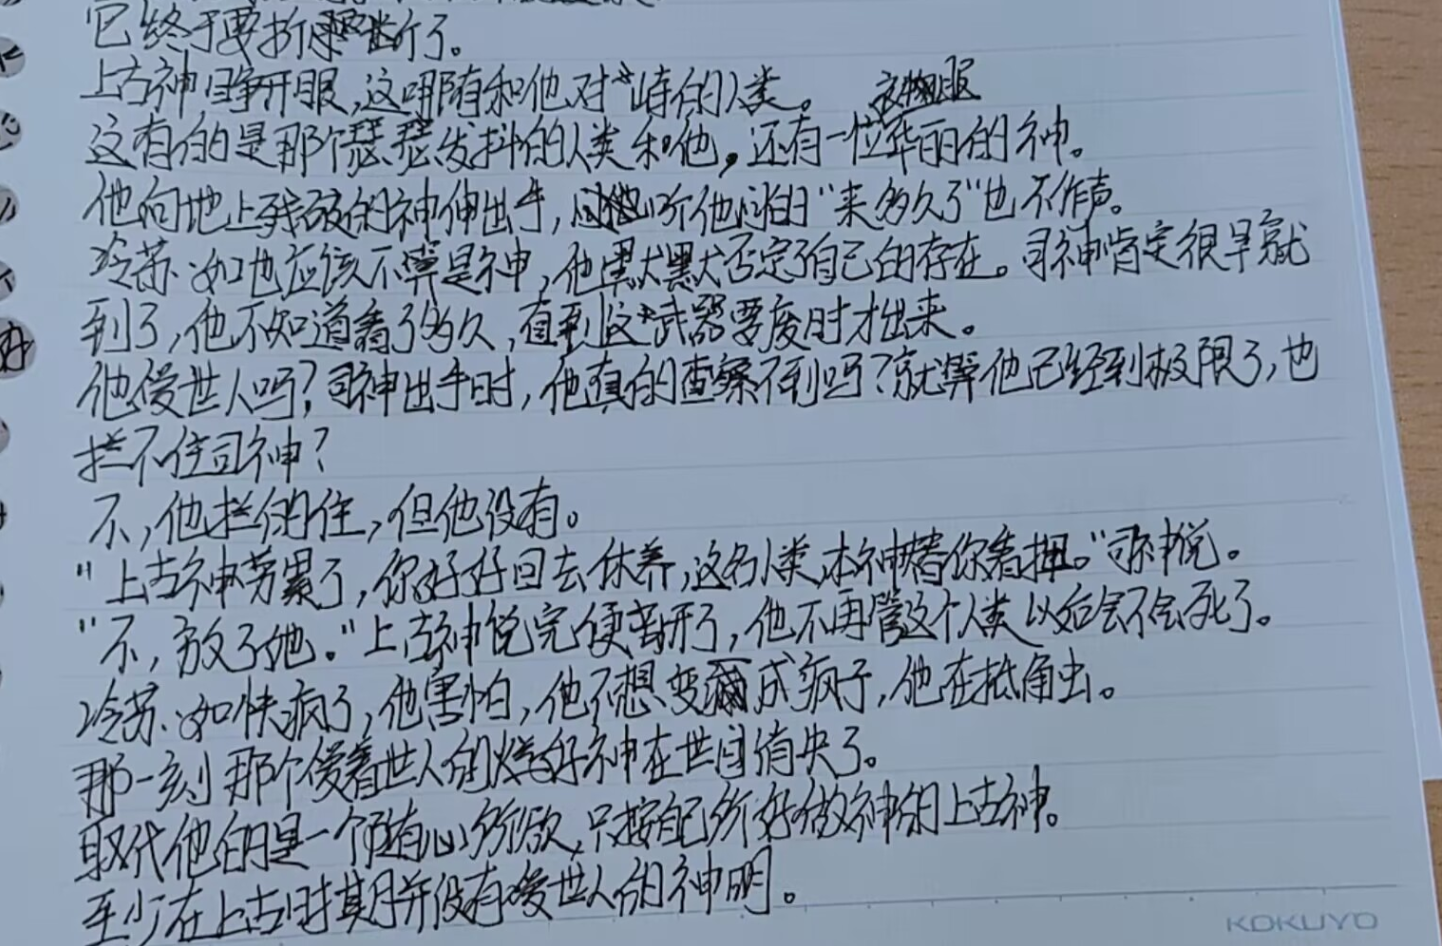 它终于要折断了。
上古神睁开眼,这哪有和他对峙的人类。
衣服
这有的是那个瑟瑟发抖的人类和他。还有一位华丽的神。
他向地上残破的神伸出手,听他问的“来多久了”也不作声。
冷苏·如也应该不算是神,他默默否定了自己的存在。司神肯定很早就
到了,他不知道看了多久,直到这武器要废时才出来。
他爱世人吗?司神出手时,他真的查察不到吗?就算他已经到极限了,也
拦不住司神?
不,他拦的住,但他没有。
“上古神劳累了,你好好回去休养,这名人类本神替你看押。”司神说。
“不,放了她。”上古神说完便离开了,他不再管这个人类以后会不会死了。
冷苏·如快疯了,他害怕,他不想变成疯子,他在抵角虫。
那一刻那个爱着世人的好神在世间消失了。
取代他的是一个随心所欲,只按自己所好做神的上古神。
至少在上古时期并没有爱世人的神明。
KOKUYO